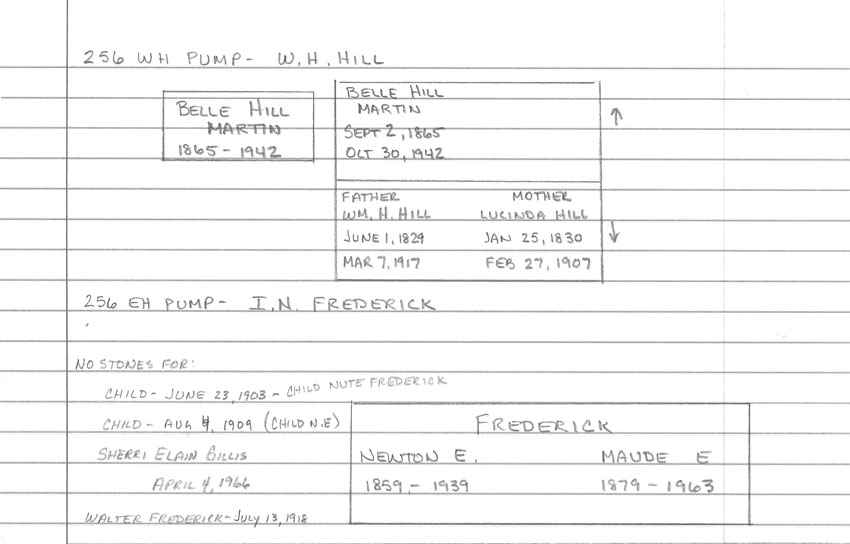 256 WH PUMP- W.H. HILL
BELLE HILL
MARTIN
1865 - 1942
BELLE HILL
MARTIN
SEPT 2, 1865
OCT 30, 1942
FATHER MOTHER
WM. H. HILL LUCINDA HILL
JUNE 1, 1829 JAN 25, 1830
MAR 7, 1917 FEB 27, 1907
256 EH PUMP- I.N. FREDERICK
NO STONES FOR:
CHILD- JUNE 23, 1903 - CHILD NUTE FREDERICK
CHILD- AUG 4, 1909 (CHILD N.E)
SHERRI ELAIN GILLIS
APRIL 4, 1966
WALTER FREDERICK-JULY 13, 1918
FREDERICK
NEWTON E. MAUDE E
1859 - 1939 1879 - 1963